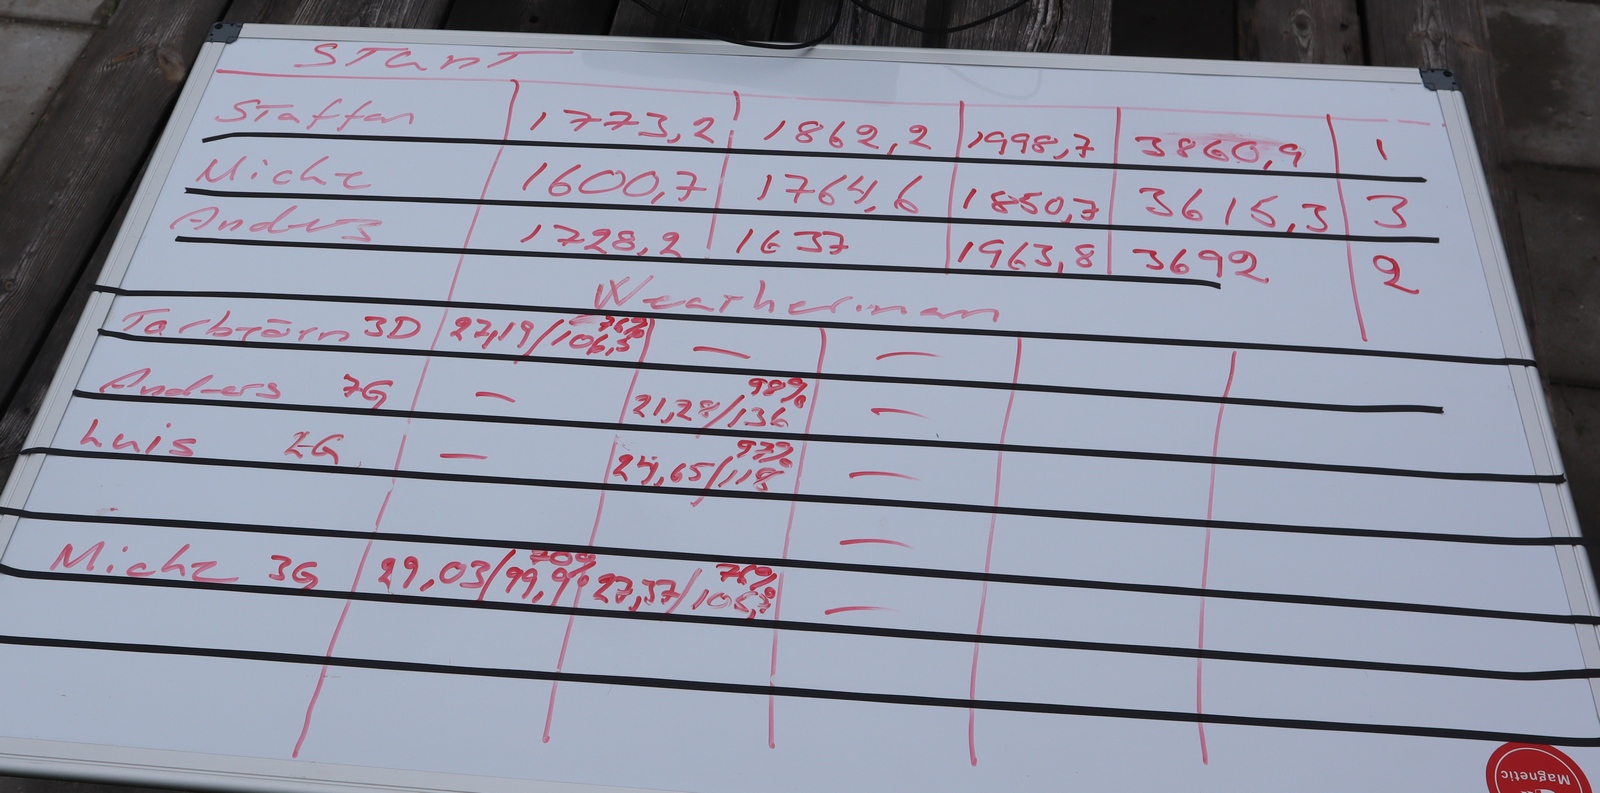 STANT
Staffan 1773,2 1862,2 1998,7 3860,9 1
Micke 1600,7 1764,6 1850,7 3615,3 3
Anders 1728,2 1637 1963,8 3692 2
Weatherman
Torbjörn 3D 27,19/106,5 76% — —
Anders 7G — 21,28/136 98% —
Luis 2G — 24,65/118 97% —
—
Micke 3G 29,03/99,9 70% 27,37/106,3 76% —
Magnetic